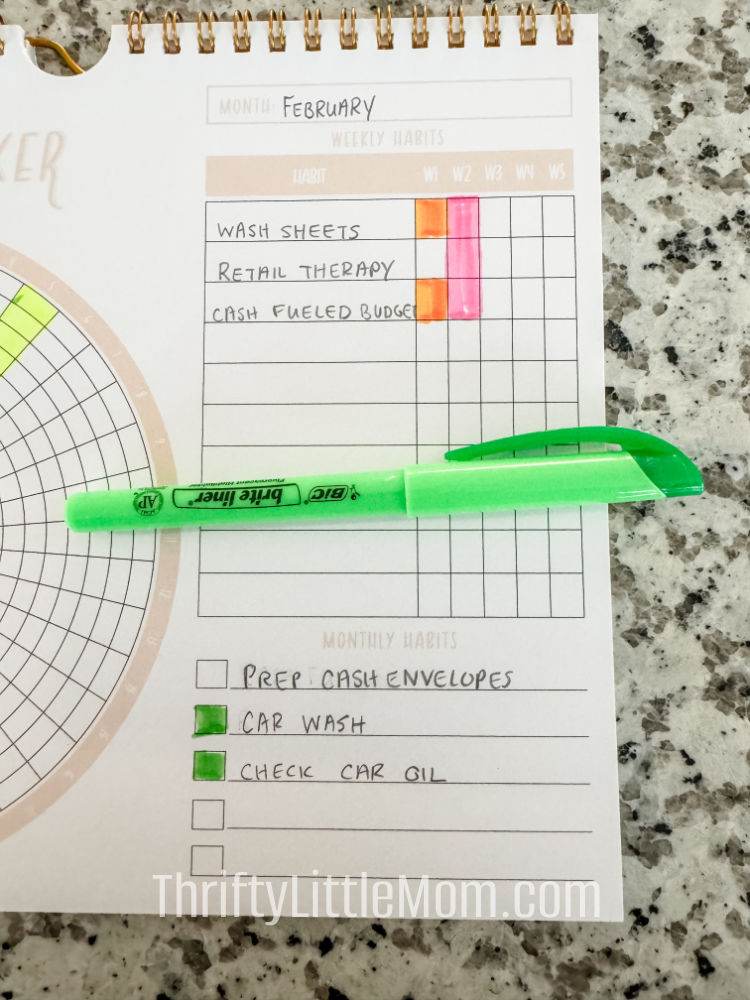 KER
MONTH: FEBRUARY
WEEKLY HABITS
HABIT W1 W2 W3 W4 W5
WASH SHEETS
RETAIL THERAPY
CASH FUELED BUDGET
BIC brite liner
Fluorescent Highlighter
AP
MONTHLY HABITS
PREP CASH ENVELOPES
CAR WASH
CHECK CAR OIL
ThriftyLittleMom.com